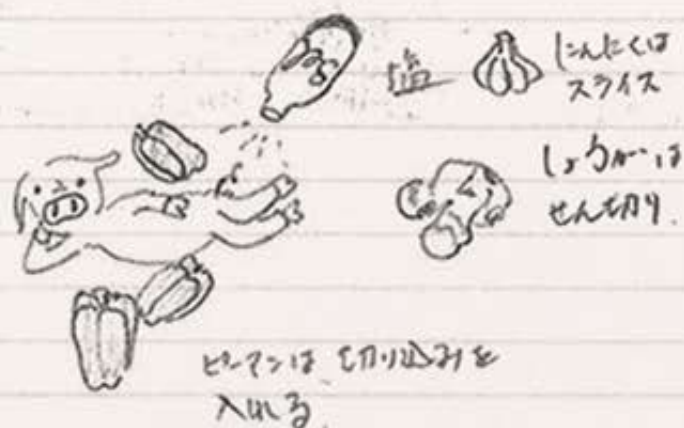 塩
にんにくは
スライス
しょうがは
せん切り.
ピーマンは 切り込みを
入れる